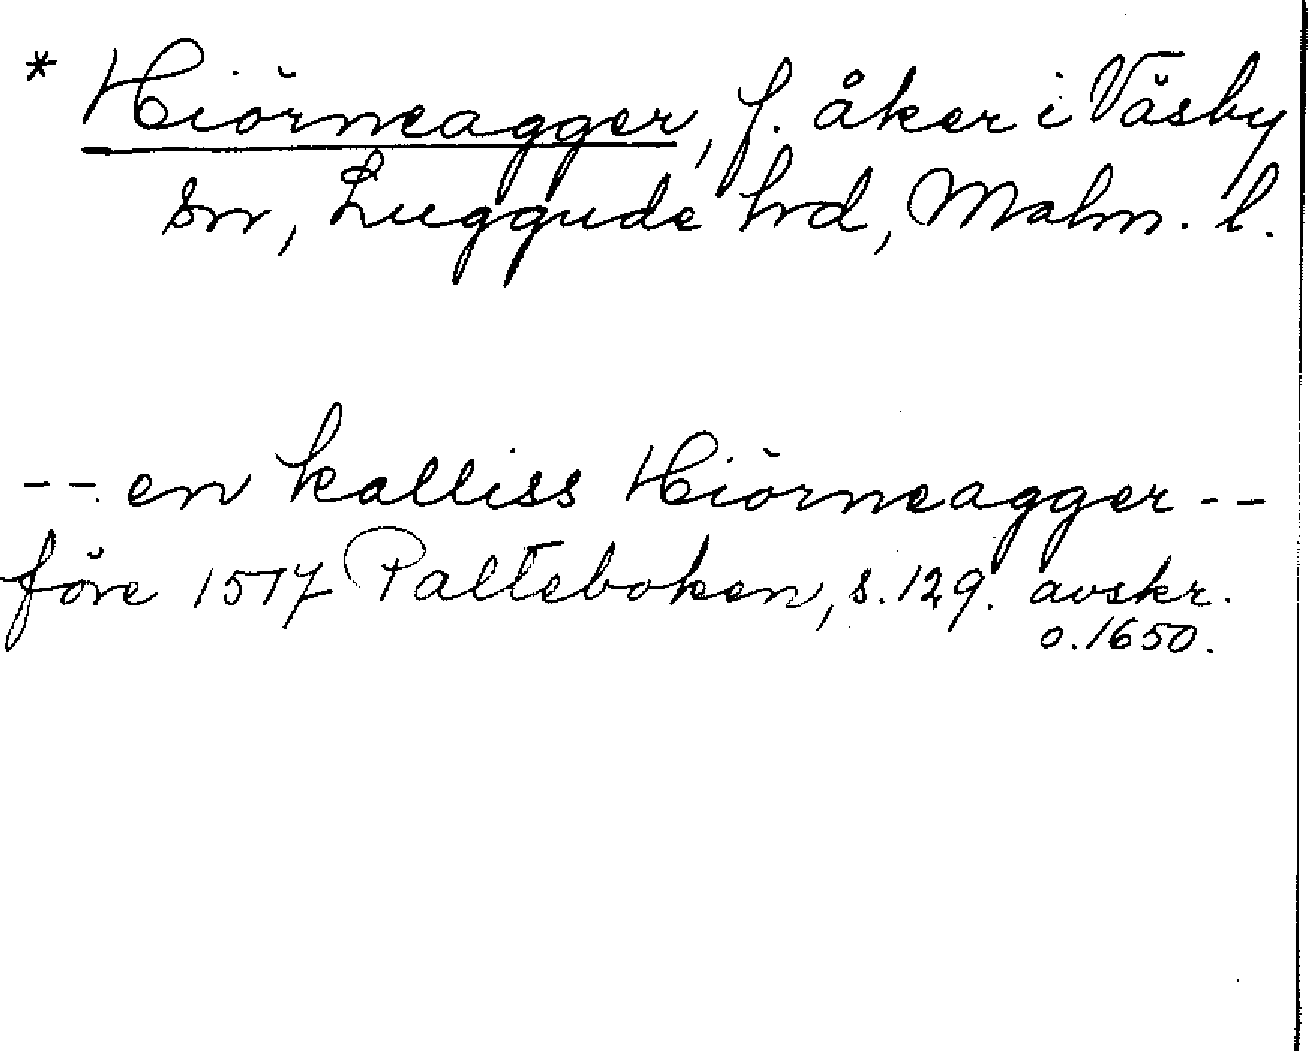 * Hiörneagger, f. åker i Väsby
sn, Luggude hrd, Malm. l.
-- en kalliss Hiörneagger --
före 1517 Palteboken, s. 129. avskr.
o. 1650.